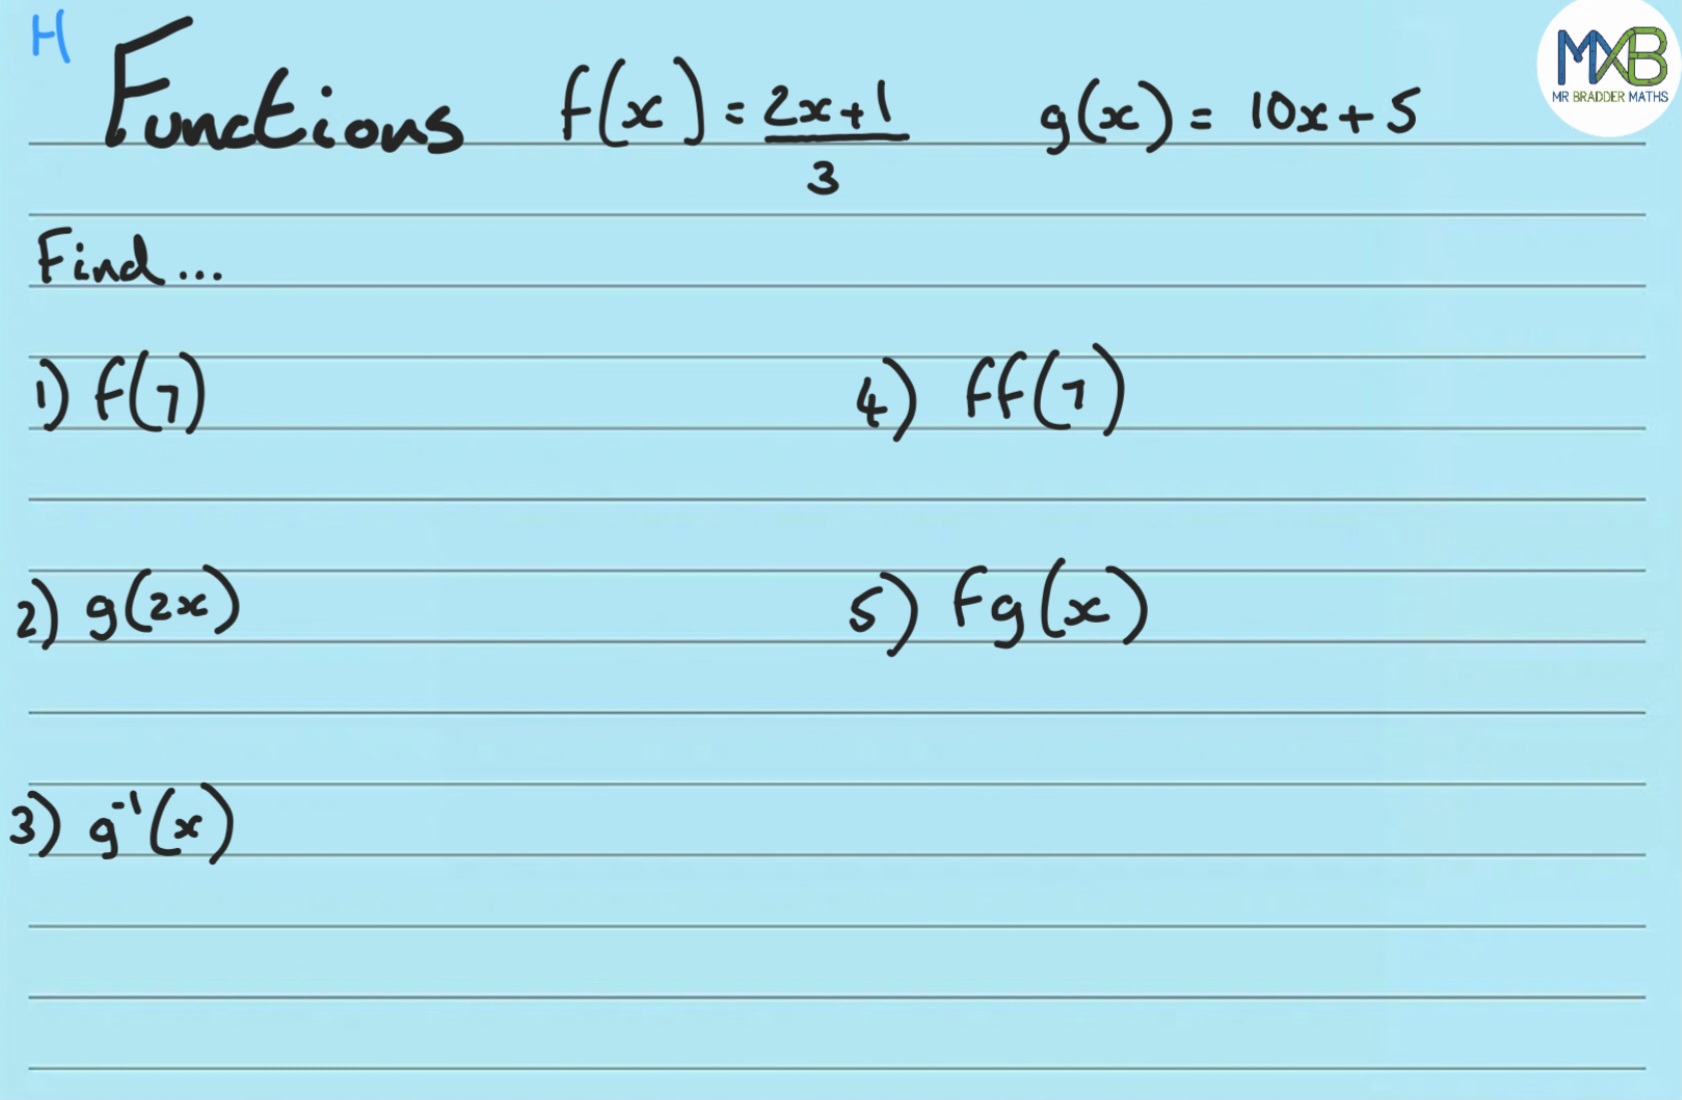 H
Functions f(x) = 2x+1/3 g(x) = 10x+5
MXB
MR BRADDER MATHS
Find...
1) f(7)
4) ff(7)
2) g(2x)
5) fg(x)
3) g⁻¹(x)